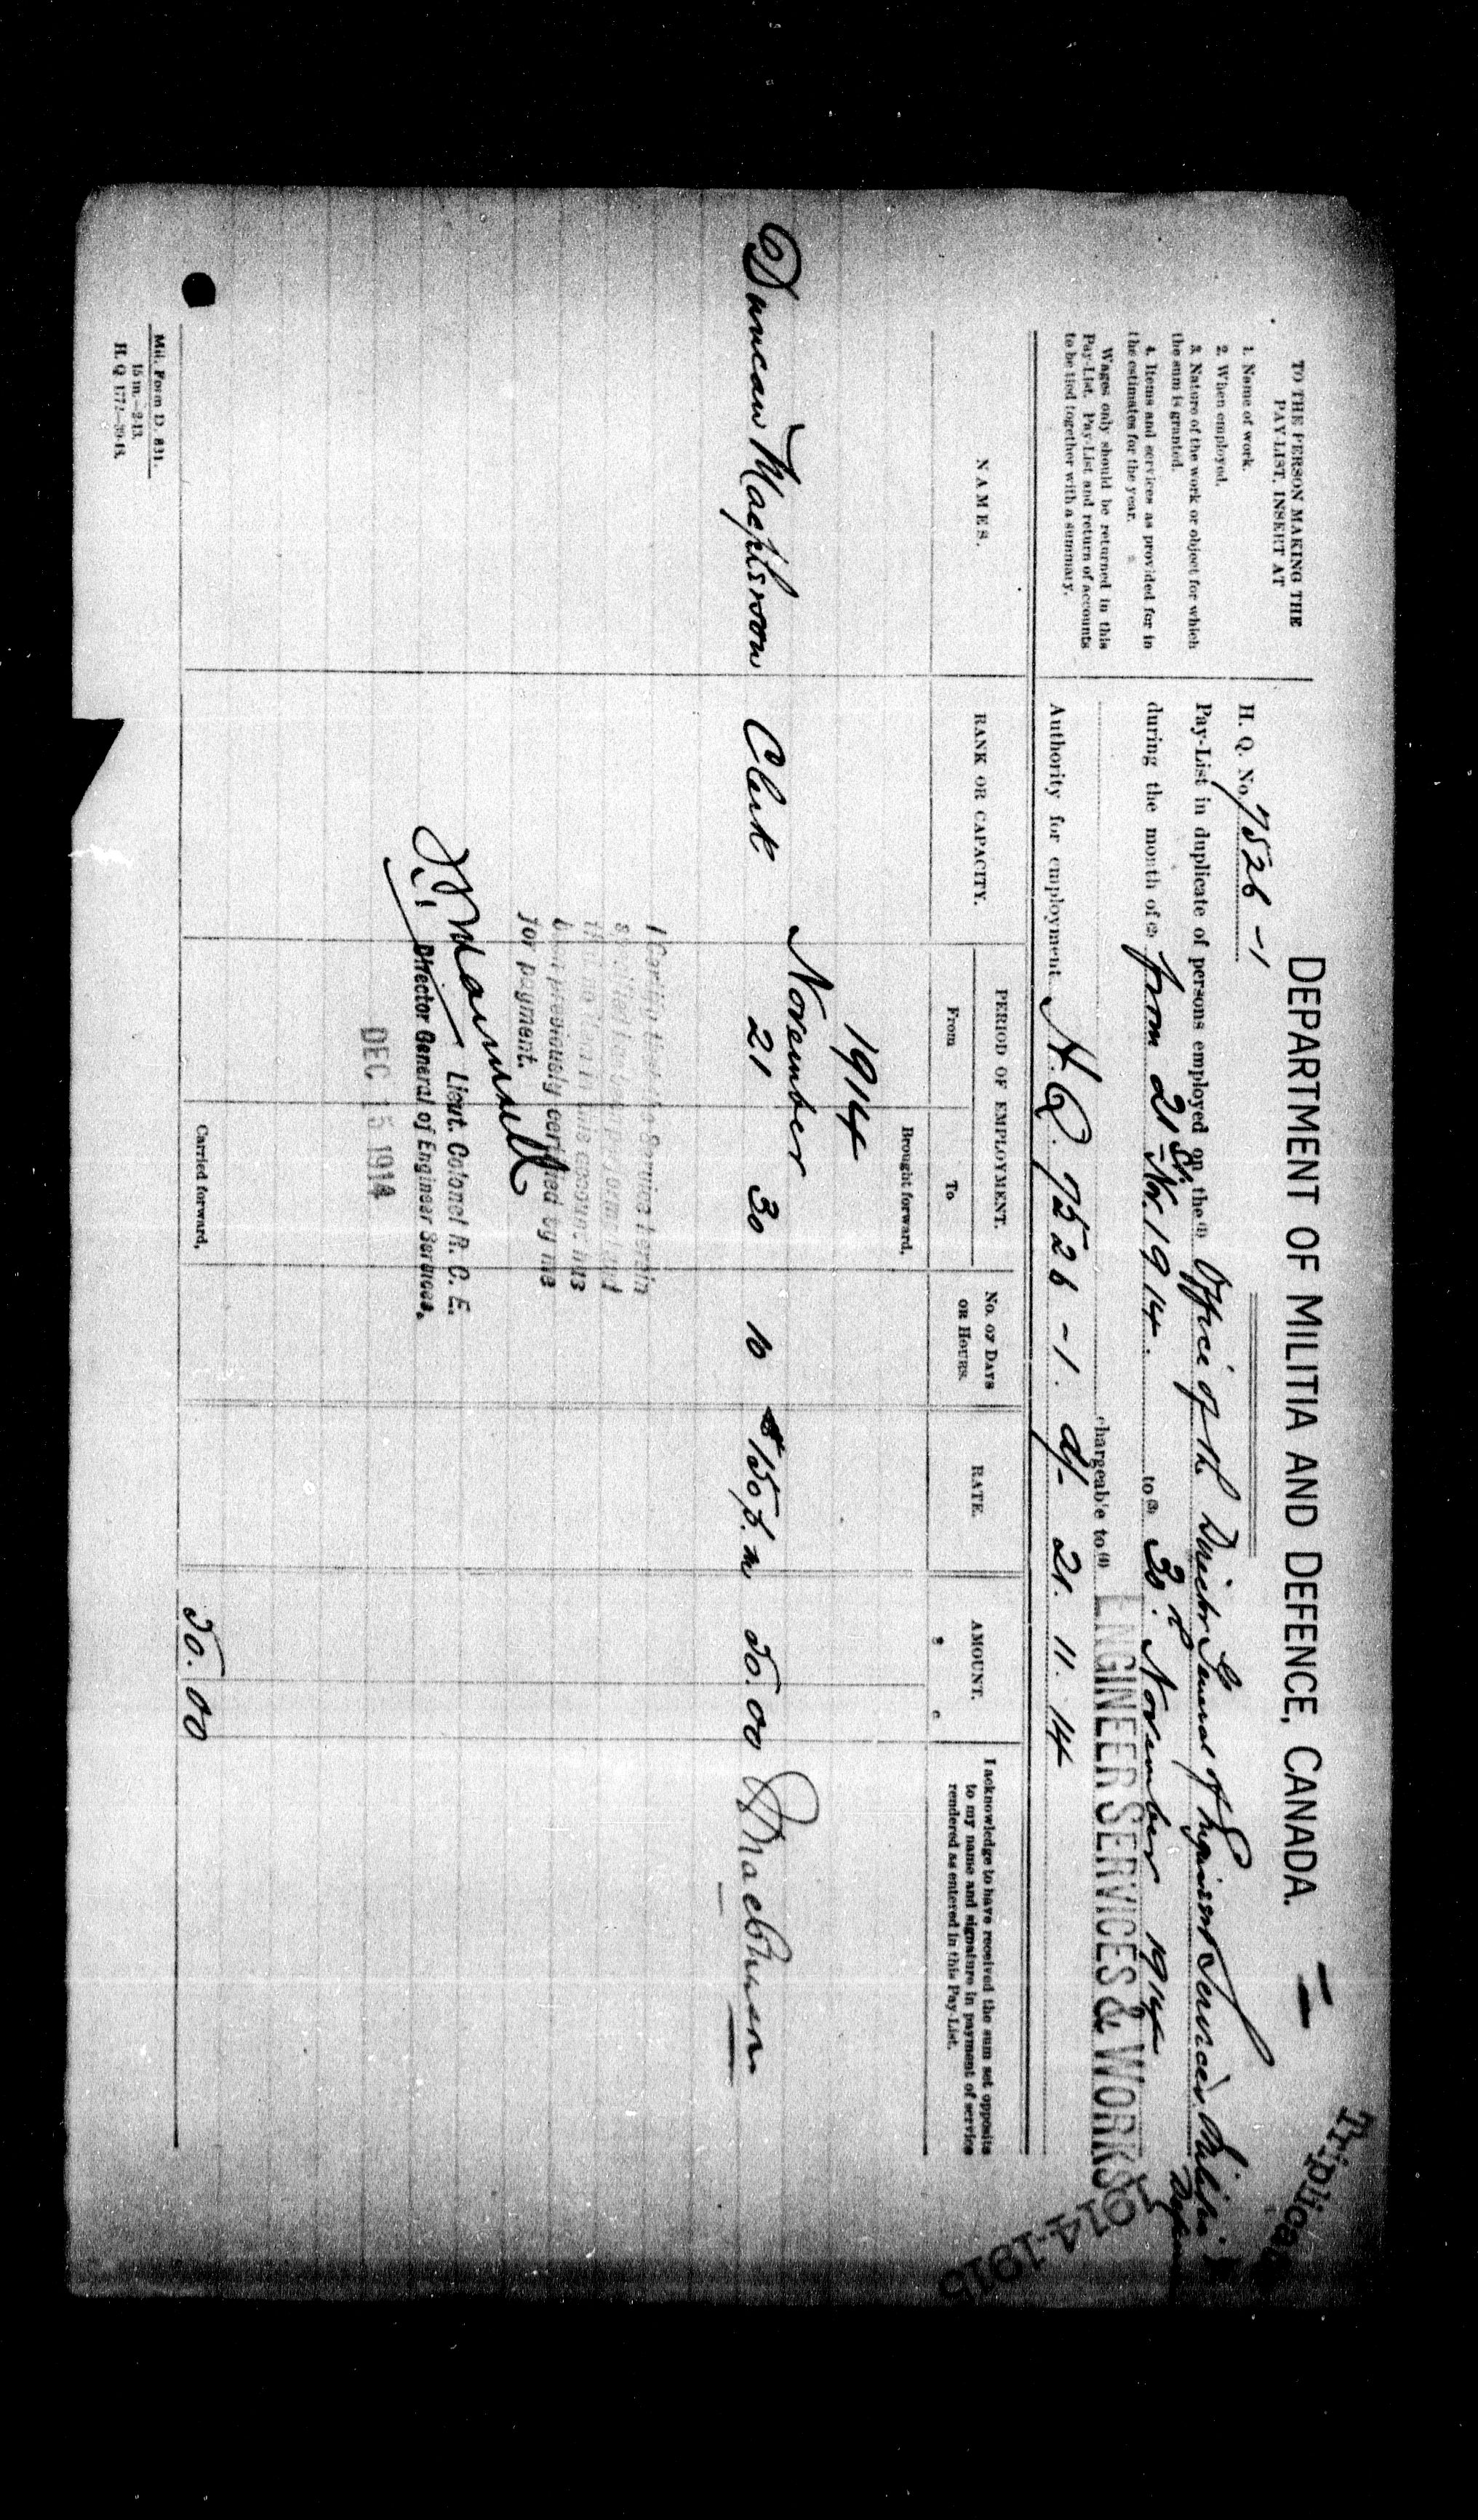 TO THE PERSON MAKING THE
PAY-LIST, INSERT AT
1. Name of work.
2. When employed.
3. Nature of the work or object for which
the sum is granted.
4. Items and services as provided for in
the estimates for the year.
Wages only should be returned in this
Pay-List. Pay-List and return of accounts
to be tied together with a summary.
DEPARTMENT OF MILITIA AND DEFENCE, CANADA.
Triplicate
H. Q. No. 7526-1
Pay-List in duplicate of persons employed on the (1) Office of the Director General of Engineer Services, Militia &
during the month of (2) from 21st Nov. 1914. to (3) 30th November 1914
chargeable to (4) ENGINEER SERVICES & WORKS 1914-1915
Authority for employment H.Q. 7526-1. d/- 21. 11. 14
NAMES.
RANK OR CAPACITY.
PERIOD OF EMPLOYMENT.
From
To
No. OF DAYS
OR HOURS.
RATE.
AMOUNT.
$ c
I acknowledge to have received the sum set opposite
to my name and signature in payment of service
rendered as entered in this Pay-List.
Brought forward,
1914
November
Duncan Macpherson Clerk 21 30 10 $150 p.m 50.00 Macpherson
I Certify that the Service herein
specified has been performed and
that no item in this account has
been previously certified by me
for payment.
Lieut. Colonel R. C. E.
Director General of Engineer Services.
DEC 15 1914
Carried forward,
50.00
Mil. Form D. 831.
15 m.—2-13.
H. Q. 1772-39-18.